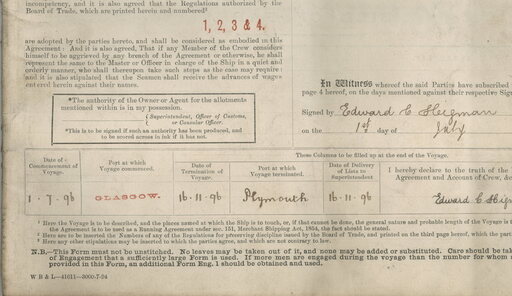 incompetency, and it is also agreed that the Regulations authorized by the
Board of Trade, which are printed herein and numbered²
1, 2, 3 & 4.
are adopted by the parties hereto, and shall be considered as embodied in this
Agreement: And it is also agreed, That if any Member of the Crew considers
himself to be aggrieved by any breach of the Agreement or otherwise, he shall
represent the same to the Master or Officer in charge of the Ship in a quiet and
orderly manner, who shall thereupon take such steps as the case may require:
and it is also stipulated that the Seamen shall receive the advances of wages
entered herein against their names.
*The authority of the Owner or Agent for the allotments
mentioned within is in my possession.
Superintendent, Officer of Customs,
or Consular Officer.
*This is to be signed if such an authority has been produced, and
to be scored across in ink if it has not.
In Witness whereof the said Parties have subscribed
page 4 hereof, on the days mentioned against their respective Sign
Signed by Edward C
on the 1st day of July
These Columns to be filled up at the end of the Voyage.
Date of
Commencement of
Voyage.
Port at which
Voyage commenced.
Date of
Termination of
Voyage.
Port at which
Voyage terminated.
Date of Delivery
of Lists to
Superintendent
I hereby declare to the truth of the
Agreement and Account of Crew, &c
1. 7. 96
GLASGOW.
16. 11. 96
Plymouth
16. 11. 96
Edward C
¹ Here the Voyage is to be described, and the places named at which the Ship is to touch, or, if that cannot be done, the general nature and probable length of the Voyage is
the Agreement is to be used as a Running Agreement under sec. 151, Merchant Shipping Act, 1854, the fact should be stated.
² Here are to be inserted the Numbers of any of the Regulations for preserving discipline issued by the Board of Trade, and printed on the third page hereof, which the part
³ Here any other stipulations may be inserted to which the parties agree, and which are not contrary to law.
N.B.—This Form must not be unstitched. No leaves may be taken out of it, and none may be added or substituted. Care should be take
of Engagement that a sufficiently large Form is used. If more men are engaged during the voyage than the number for whom s
provided in this Form, an additional Form Eng. 1 should be obtained and used.
W B & L—41611—3000-7-94